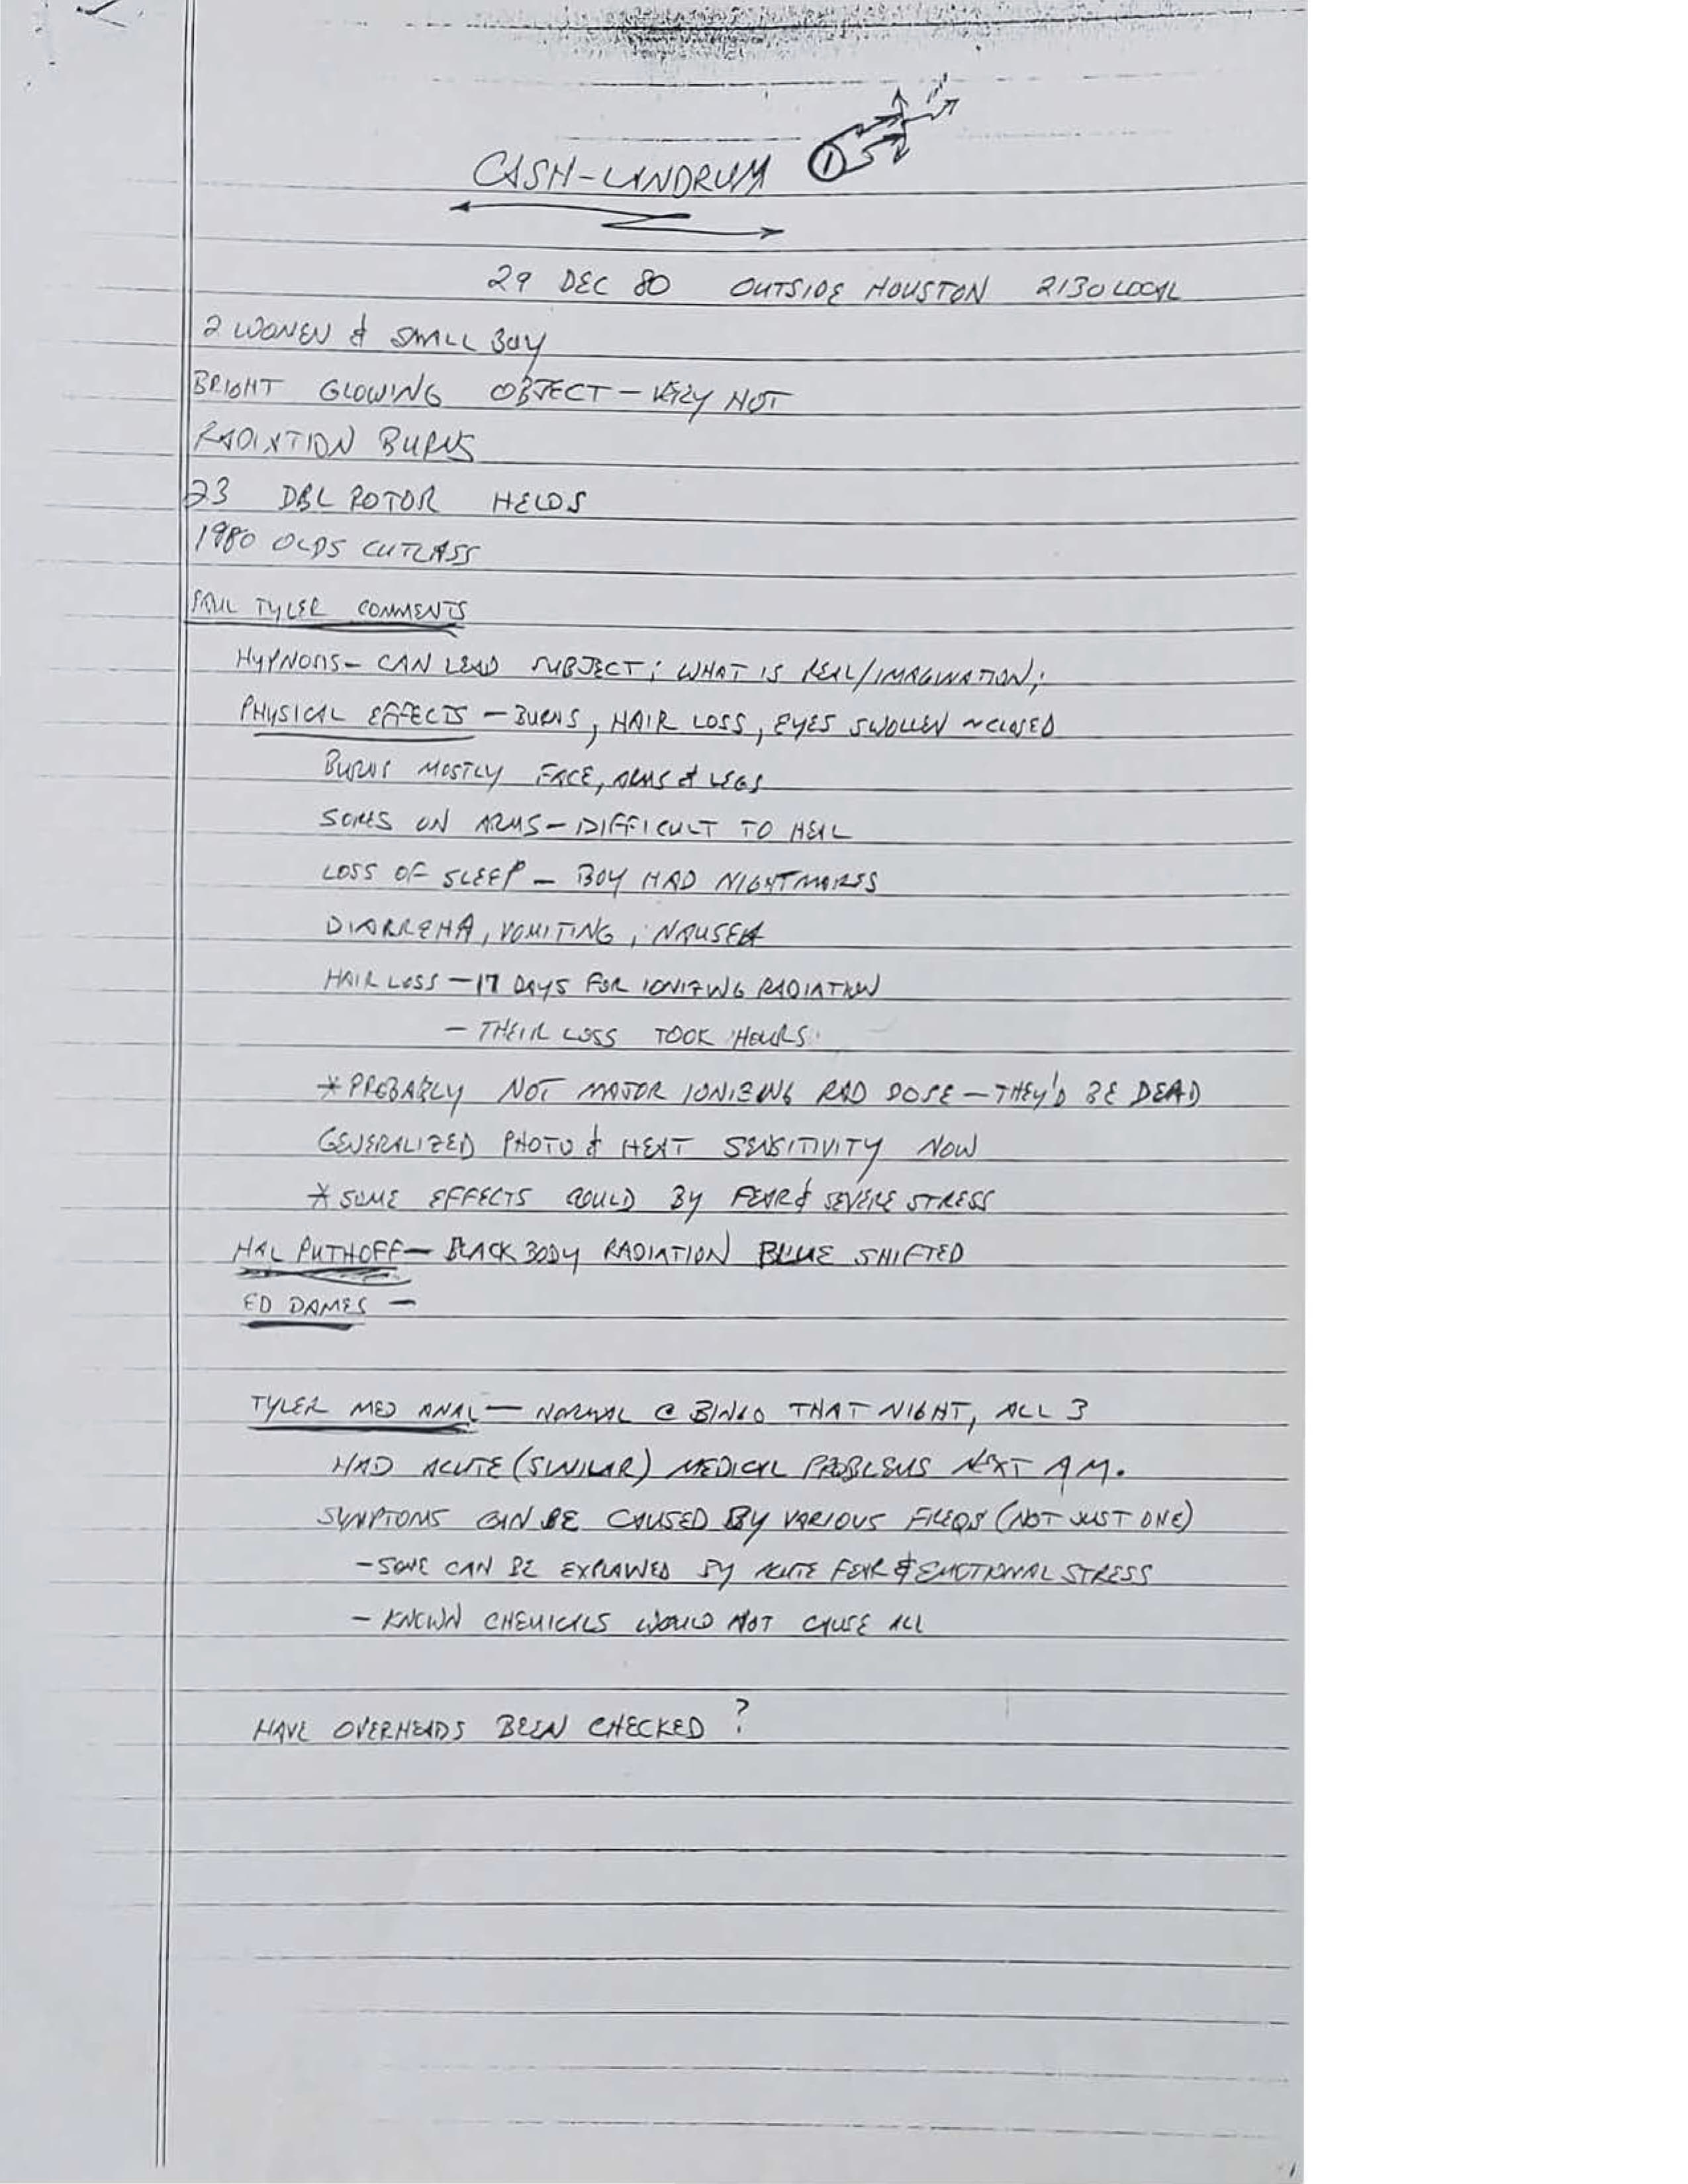 CASH-LANDRUM
1
29 DEC 80 OUTSIDE HOUSTON 2130 LOCAL
2 WOMEN & SMALL BOY
BRIGHT GLOWING OBJECT - VERY HOT
RADIATION BURNS
23 DBL ROTOR HELOS
1980 OLDS CUTLASS
PAUL TYLER COMMENTS
HYPNOSIS - CAN LEAD SUBJECT; WHAT IS REAL/IMAGINATION;
PHYSICAL EFFECTS - BURNS, HAIR LOSS, EYES SWOLLEN ~CLOSED
BURNS MOSTLY FACE, ARMS & LEGS
SORES ON ARMS - DIFFICULT TO HEAL
LOSS OF SLEEP - BOY HAD NIGHTMARES
DIARREHA, VOMITING, NAUSEA
HAIR LOSS - 17 DAYS FOR IONIZING RADIATION
- THEIR LOSS TOOK HOURS
* PROBABLY NOT MAJOR IONIZING RAD DOSE - THEY'D BE DEAD
GENERALIZED PHOTO & HEAT SENSITIVITY NOW
* SOME EFFECTS COULD BY FEAR & SEVERE STRESS
HAL PUTHOFF - BLACK BODY RADIATION BLUE SHIFTED
ED DAMES -
TYLER MED ANAL - NORMAL @ BINGO THAT NIGHT, ALL 3
HAD ACUTE (SIMILAR) MEDICAL PROBLEMS NEXT AM.
SYMPTOMS CAN BE CAUSED BY VARIOUS FREQS (NOT JUST ONE)
- SOME CAN BE EXPLAINED BY ACUTE FEAR & EMOTIONAL STRESS
- KNOWN CHEMICALS WOULD NOT CAUSE ALL
HAVE OVERHEADS BEEN CHECKED?
1